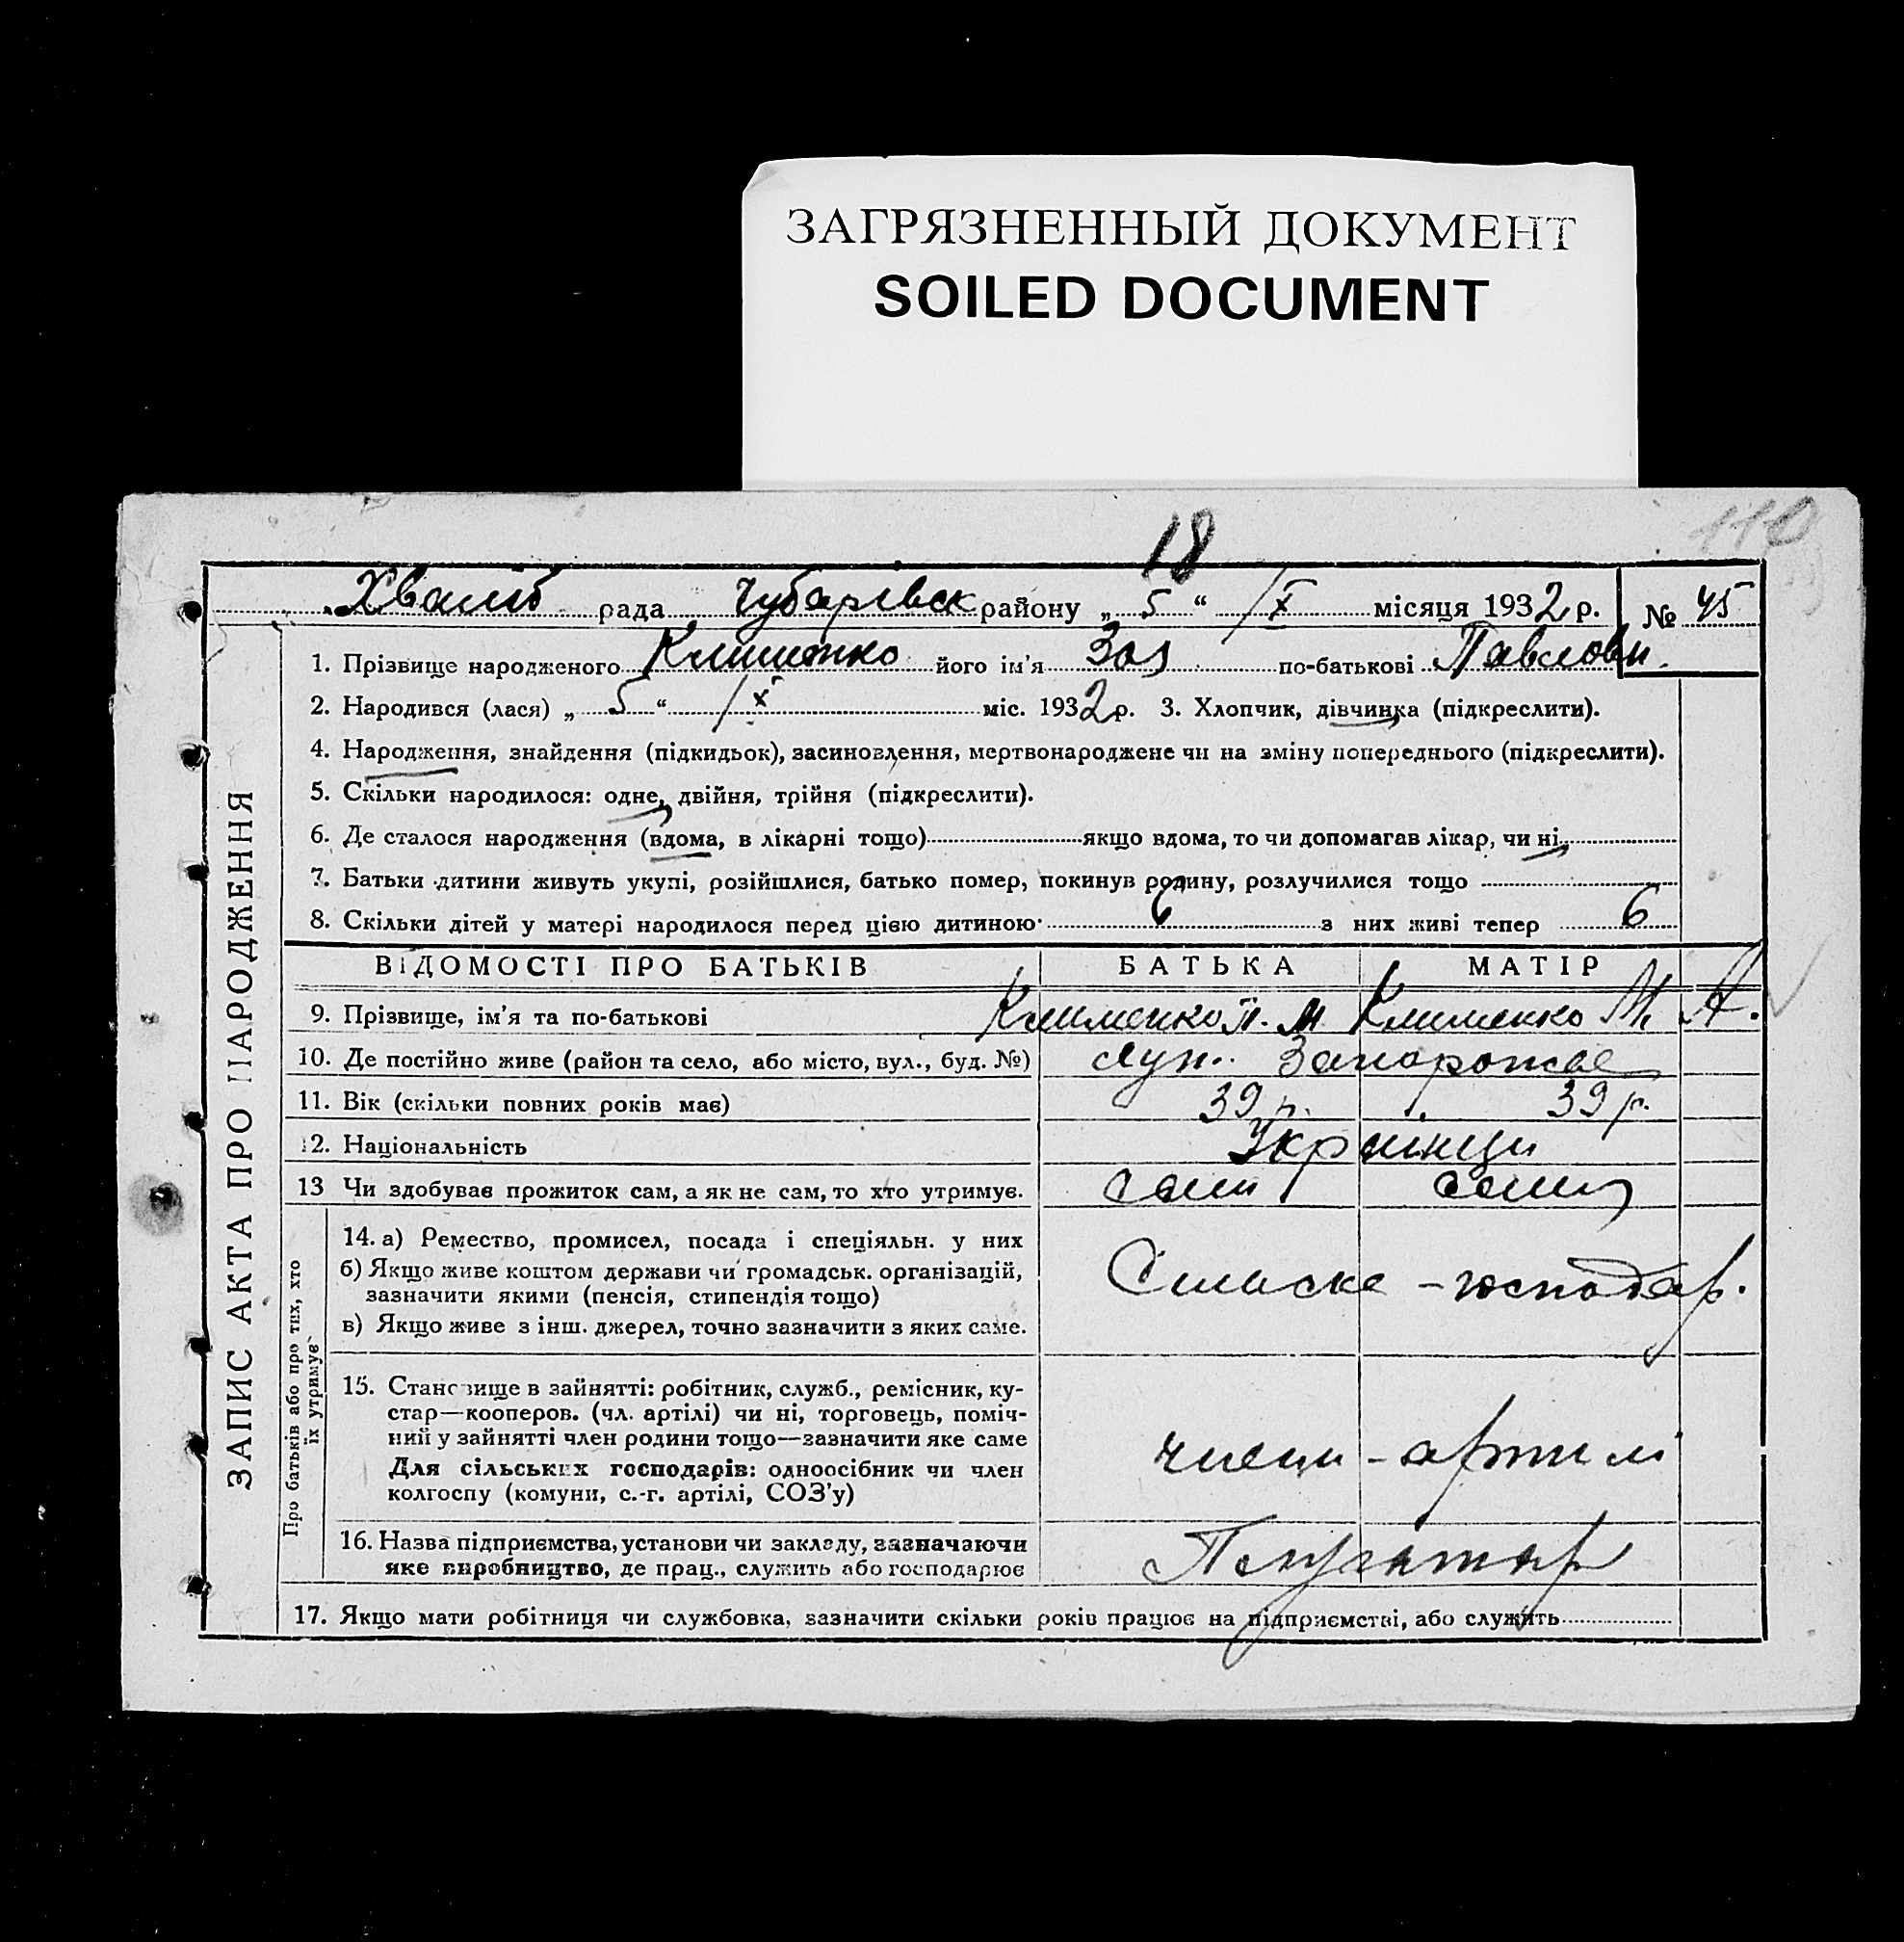 ЗАГРЯЗНЕННЫЙ ДОКУМЕНТ
SOILED DOCUMENT
110
18
рада Чубарівск району „ 5 “ /X місяця 1932 р. № 45
1. Прізвище народженого Клименко його ім'я Зоя по-батькові Павлови
2. Народився (лася) „ 5 “ /X міс. 1932 р. 3. Хлопчик, дівчинка (підкреслити).
4. Народження, знайдення (підкидьок), засиновлення, мертвонароджене чи на зміну попереднього (підкреслити).
5. Скільки народилося: одне, двійня, трійня (підкреслити).
6. Де сталося народження (вдома, в лікарні тощо) якщо вдома, то чи допомагав лікар, чи ні,
7. Батьки дитини живуть укупі, розійшлися, батько помер, покинув родину, розлучилися тощо
8. Скільки дітей у матері народилося перед цією дитиною 6 з них живі тепер 6
ВІДОМОСТІ ПРО БАТЬКІВ БАТЬКА МАТІР
9. Прізвище, ім'я та по-батькові Клименко П. М Клименко М. А.
10. Де постійно живе (район та село, або місто, вул., буд. №) Запорожье
11. Вік (скільки повних років має) 39 р. 39 р.
12. Національність Українци
13 Чи здобуває прожиток сам, а як не сам, то хто утримує. сами сами
14. а) Ремество, промисел, посада і спеціяльн. у них
б) Якщо живе коштом держави чи громадськ. організацій,
зазначити якими (пенсія, стипендія тощо)
в) Якщо живе з інш. джерел, точно зазначити з яких саме.
Сильске - господар.
15. Становище в зайнятті: робітник, служб., ремісник, ку-
стар—кооперов. (чл. артілі) чи ні, торговець, поміч-
ний у зайнятті член родини тощо—зазначити яке саме
Для сільських господарів: одноосібник чи член
колгоспу (комуни, с.-г. артілі, СОЗ'у)
члени - артилі
16. Назва підприємства, установи чи закладу, зазначаючи
яке виробництво, де прац., служить або господарює
17. Якщо мати робітниця чи службовка, зазначити скільки років працює на підприємстві, або служить
ЗАПИС АКТА ПРО НАРОДЖЕННЯ
Про батьків або про тих, хто
їх утримує